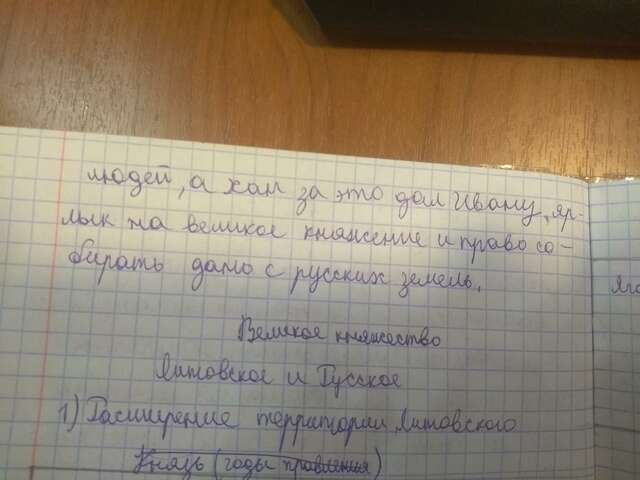 людей, а хан за это дал Ивану яр-
лык на великое княжение и право со-
бирать дань с русских земель.
Великое княжество
Литовское и Русское
1) Расширение территории Литовского
Князь (годы правления)
Яго